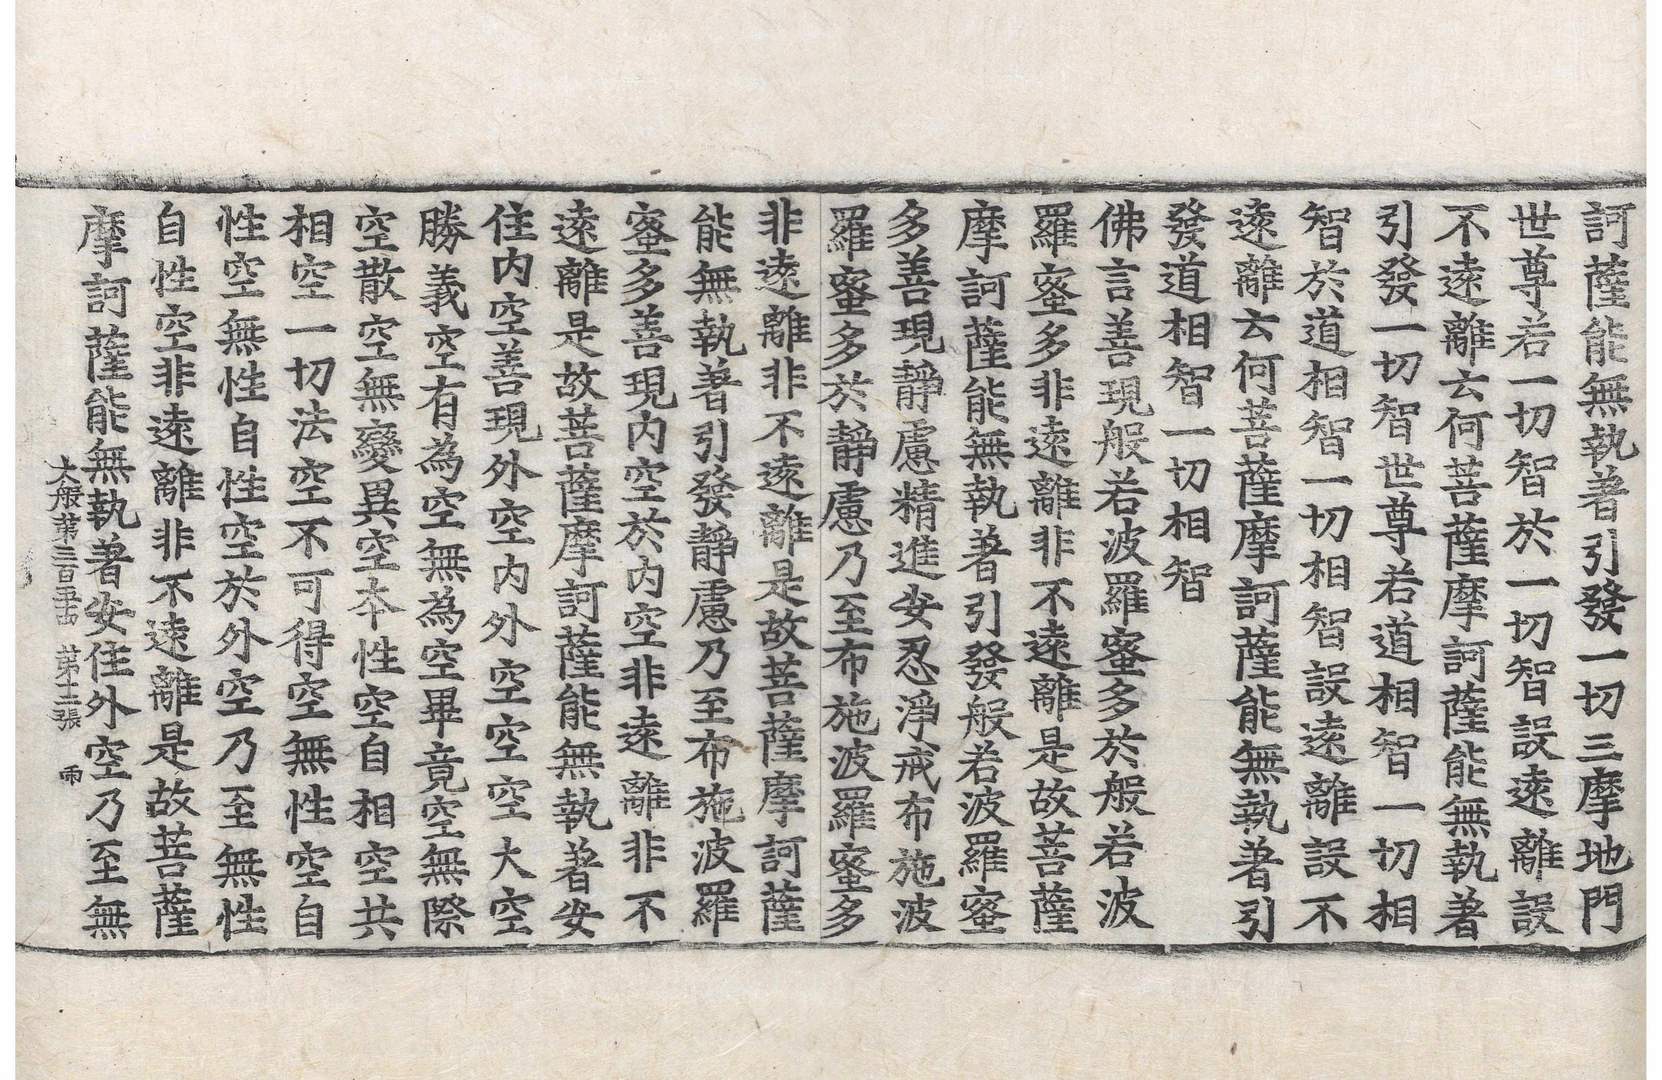 訶薩能無執著引發一切三摩地門
世尊若一切智於一切智設遠離設
不遠離云何菩薩摩訶薩能無執著
引發一切智世尊若道相智一切相
智於道相智一切相智設遠離設不
遠離云何菩薩摩訶薩能無執著引
發道相智一切相智
佛言善現般若波羅蜜多於般若波
羅蜜多非遠離非不遠離是故菩薩
摩訶薩能無執著引發般若波羅蜜
多善現靜慮精進安忍淨戒布施波
羅蜜多於靜慮乃至布施波羅蜜多
非遠離非不遠離是故菩薩摩訶薩
能無執著引發靜慮乃至布施波羅
蜜多善現內空於內空非遠離非不
遠離是故菩薩摩訶薩能無執著安
住內空善現外空內外空空空大空
勝義空有為空無為空畢竟空無際
空散空無變異空本性空自相空共
相空一切法空不可得空無性空自
性空無性自性空於外空乃至無性
自性空非遠離非不遠離是故菩薩
摩訶薩能無執著安住外空乃至無
大般苐三百五十四 苐十二張 雨